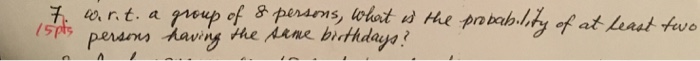 7. w.r.t. a group of 8 persons, what is the probability of at least two
15pts persons having the same birthdays?